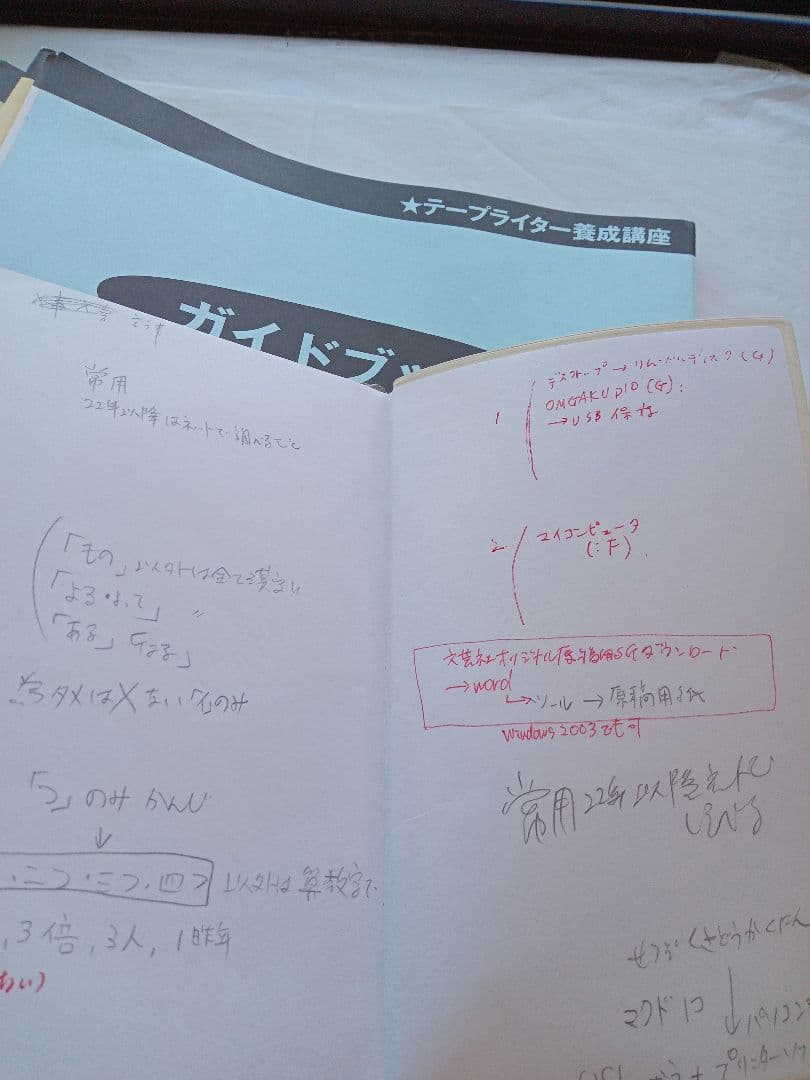 ★テープライター養成講座
ガイドブッ
常用
22年以降はネットで調べること
「もの」以外は全て漢字に
「よる・よって」 〃
「ある」「なる」
「つ」のみ かんじ
↓
・二つ・三つ・四つ 以外は算数字で
、3倍、3人、1昨年
1
デスクトップ → リムーバルディスク(G)
ONGAKU (G):
→USB 保存
2
マイコンピュータ
(:F).
文芸社オリジナル原稿用紙ダウンロード
→word
→ツール → 原稿用紙
Windows 2003でも可
常用22年以降ネットで
しらべる
せつぞくさどうかくにん
マクドロ ↓ パソコン
プリンターソフ